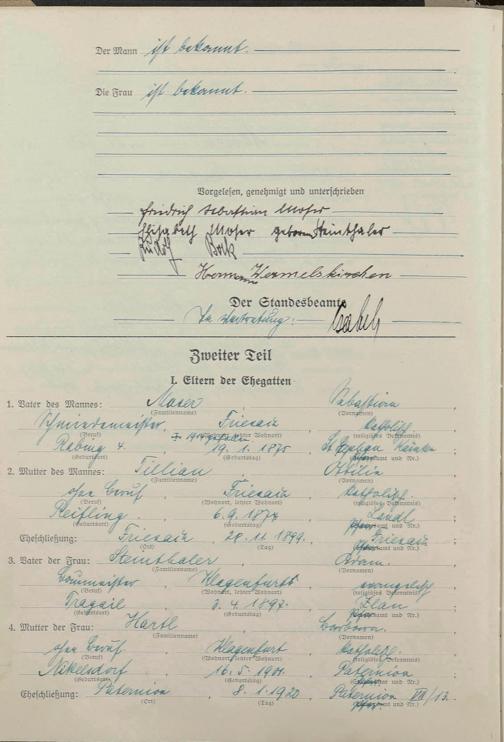 Der Mann ist bekannt.
Die Frau ist bekannt.
Vorgelesen, genehmigt und unterschrieben
Friedrich Sebastian Moser
Elisabeth Moser geborene Steinthaler
Rudolf Bock
Hermann Wermelskirchen
Der Standesbeamte
In Vertretung:
Zweiter Teil
I. Eltern der Ehegatten
1. Vater des Mannes: Moser Sebastian
(Familienname) (Vornamen)
Schmiedemeister, Friesach katholisch
(Beruf) (Wohnort, letzter Wohnort) (religiöses Bekenntnis)
Rabing 4 19. 1. 1875 St. Stephan
(Geburtsort) (Geburtstag) (Standesamt und Nr.)
2. Mutter des Mannes: Tillian Ottilia
(Familienname) (Vornamen)
ohne Beruf Friesach katholisch.
(Beruf) (Wohnort, letzter Wohnort) (religiöses Bekenntnis)
Reifling 6. 9. 1874 Landl
(Geburtsort) (Geburtstag) (Standesamt und Nr.)
Eheschließung: Friesach 28. 11. 1899. Friesach
(Ort) (Tag) (Standesamt und Nr.)
3. Vater der Frau: Steinthaler
(Familienname) (Vornamen)
Baumeister Klagenfurt evangelisch
(Beruf) (Wohnort, letzter Wohnort) (religiöses Bekenntnis)
Tragail 3. 4. 1897.
(Geburtsort) (Geburtstag) (Standesamt und Nr.)
4. Mutter der Frau: Hartl Barbara.
(Familienname) (Vornamen)
ohne Beruf Klagenfurt katholisch.
(Beruf) (Wohnort, letzter Wohnort) (religiöses Bekenntnis)
Nikelsdorf 16. 5. 1901. Paternion
(Geburtsort) (Geburtstag) (Standesamt und Nr.)
Eheschließung: Paternion 8. 1. 1920 Paternion VII/13.
(Ort) (Tag) (Standesamt und Nr.)